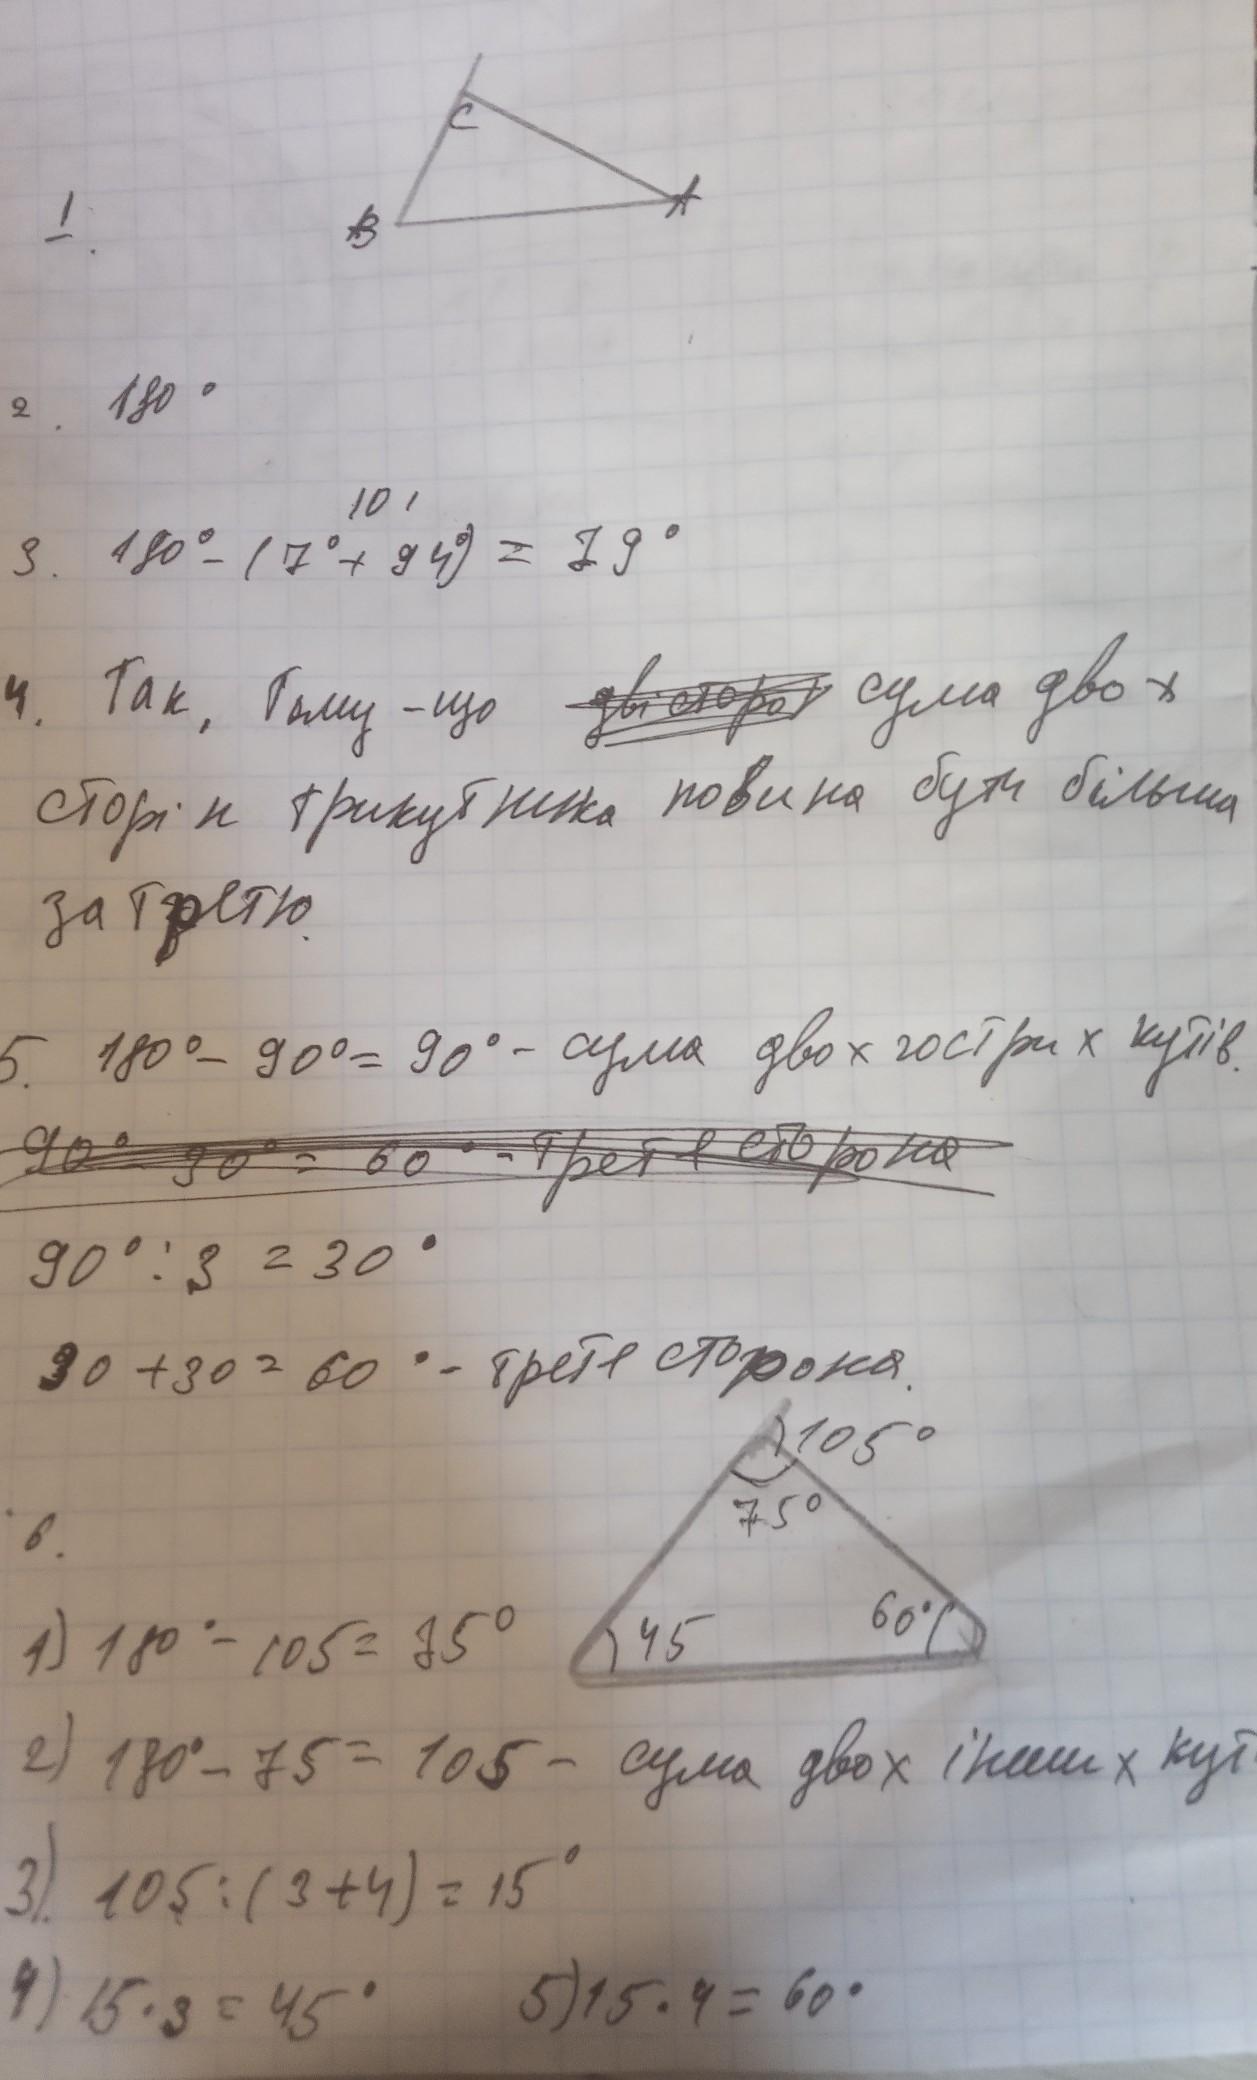 1.
C
B
A
2. 180°
101
3. 180° - (7° + 94°) = 79°
4. Так, тому-що двісторо сума двох
сторін трикутника повина бути більша
за третю.
5. 180° - 90° = 90° - сума двох гострих кутів.
90° - 30° = 60° - третє сторона
90° : 3 = 30°
30 + 30 = 60° - третє сторона.
105°
75°
6.
45
60°
1) 180° - 105 = 75°
2) 180° - 75 = 105 - сума двох інших кут
3) 105 : (3 + 4) = 15°
4) 15 · 3 = 45°
5) 15 · 4 = 60°